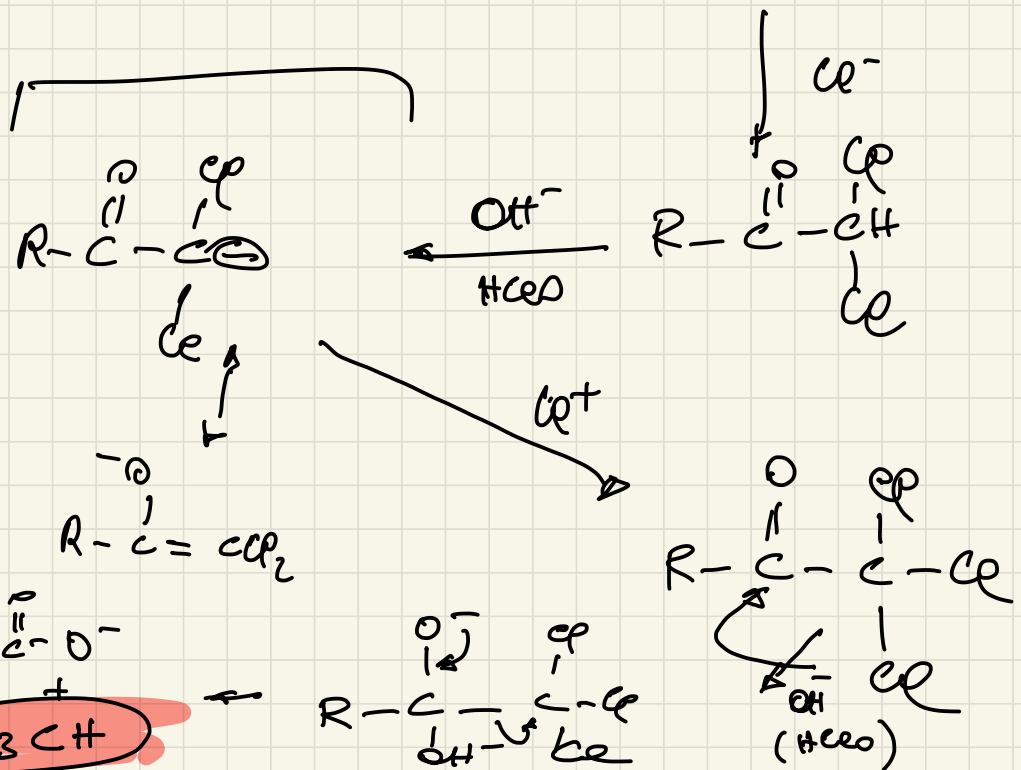 Cl⁻
O Cl
R - C - C ⊖
Cl
OH⁻
HClO
O Cl
R - C - CH
Cl
Cl⁺
⁻O
R - C = CCl₂
O Cl
R - C - C - Cl
Cl
OH⁻
(HClO)
O
C - O⁻
+
3 CH
O⁻ Cl
R - C - C - Cl
OH Cl